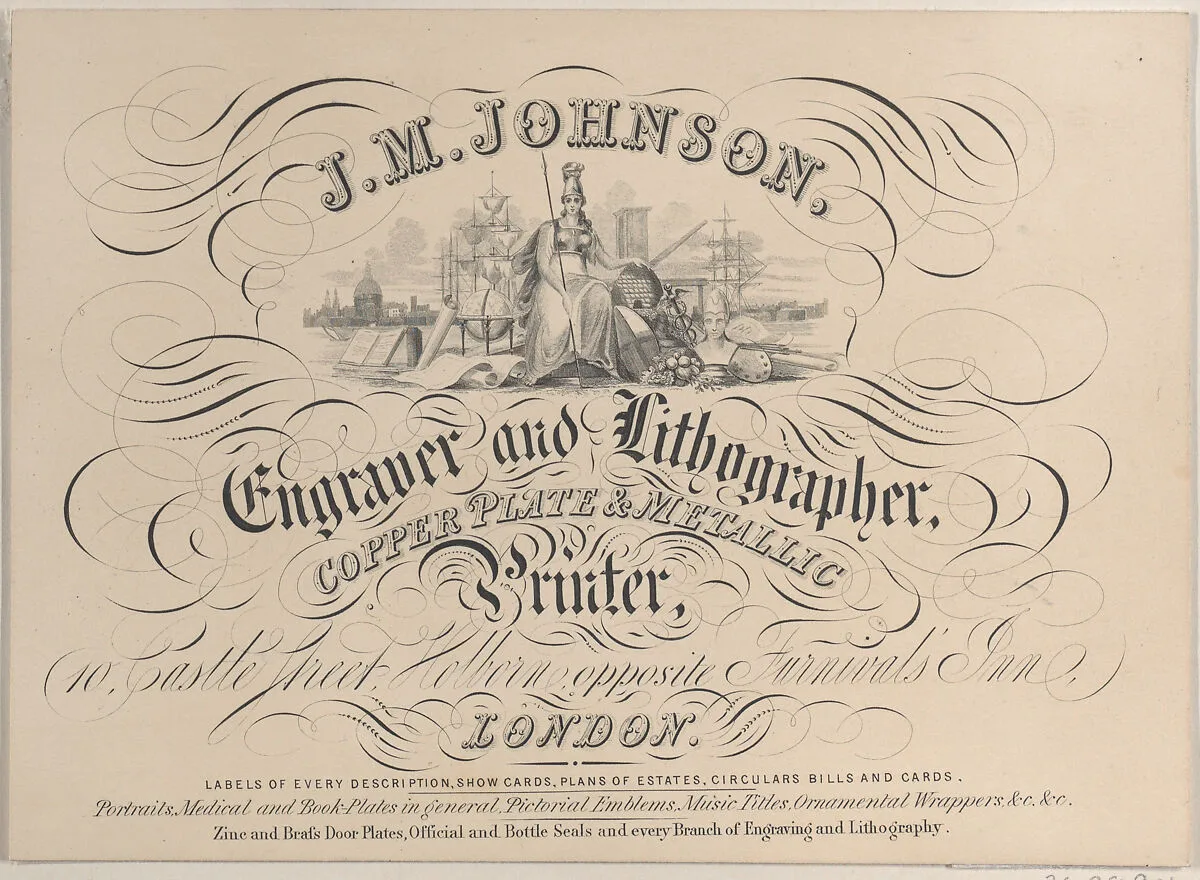 J. M. JOHNSON,
Engraver and Lithographer,
COPPER PLATE & METALLIC
Printer,
10, Castle Street, Holborn, opposite Furnival's Inn,
LONDON.
LABELS OF EVERY DESCRIPTION, SHOW CARDS, PLANS OF ESTATES, CIRCULARS BILLS AND CARDS.
Portraits, Medical and Book-Plates in general, Pictorial Emblems, Music Titles, Ornamental Wrappers, &c. &c.
Zinc and Braſs Door Plates, Official and Bottle Seals and every Branch of Engraving and Lithography.